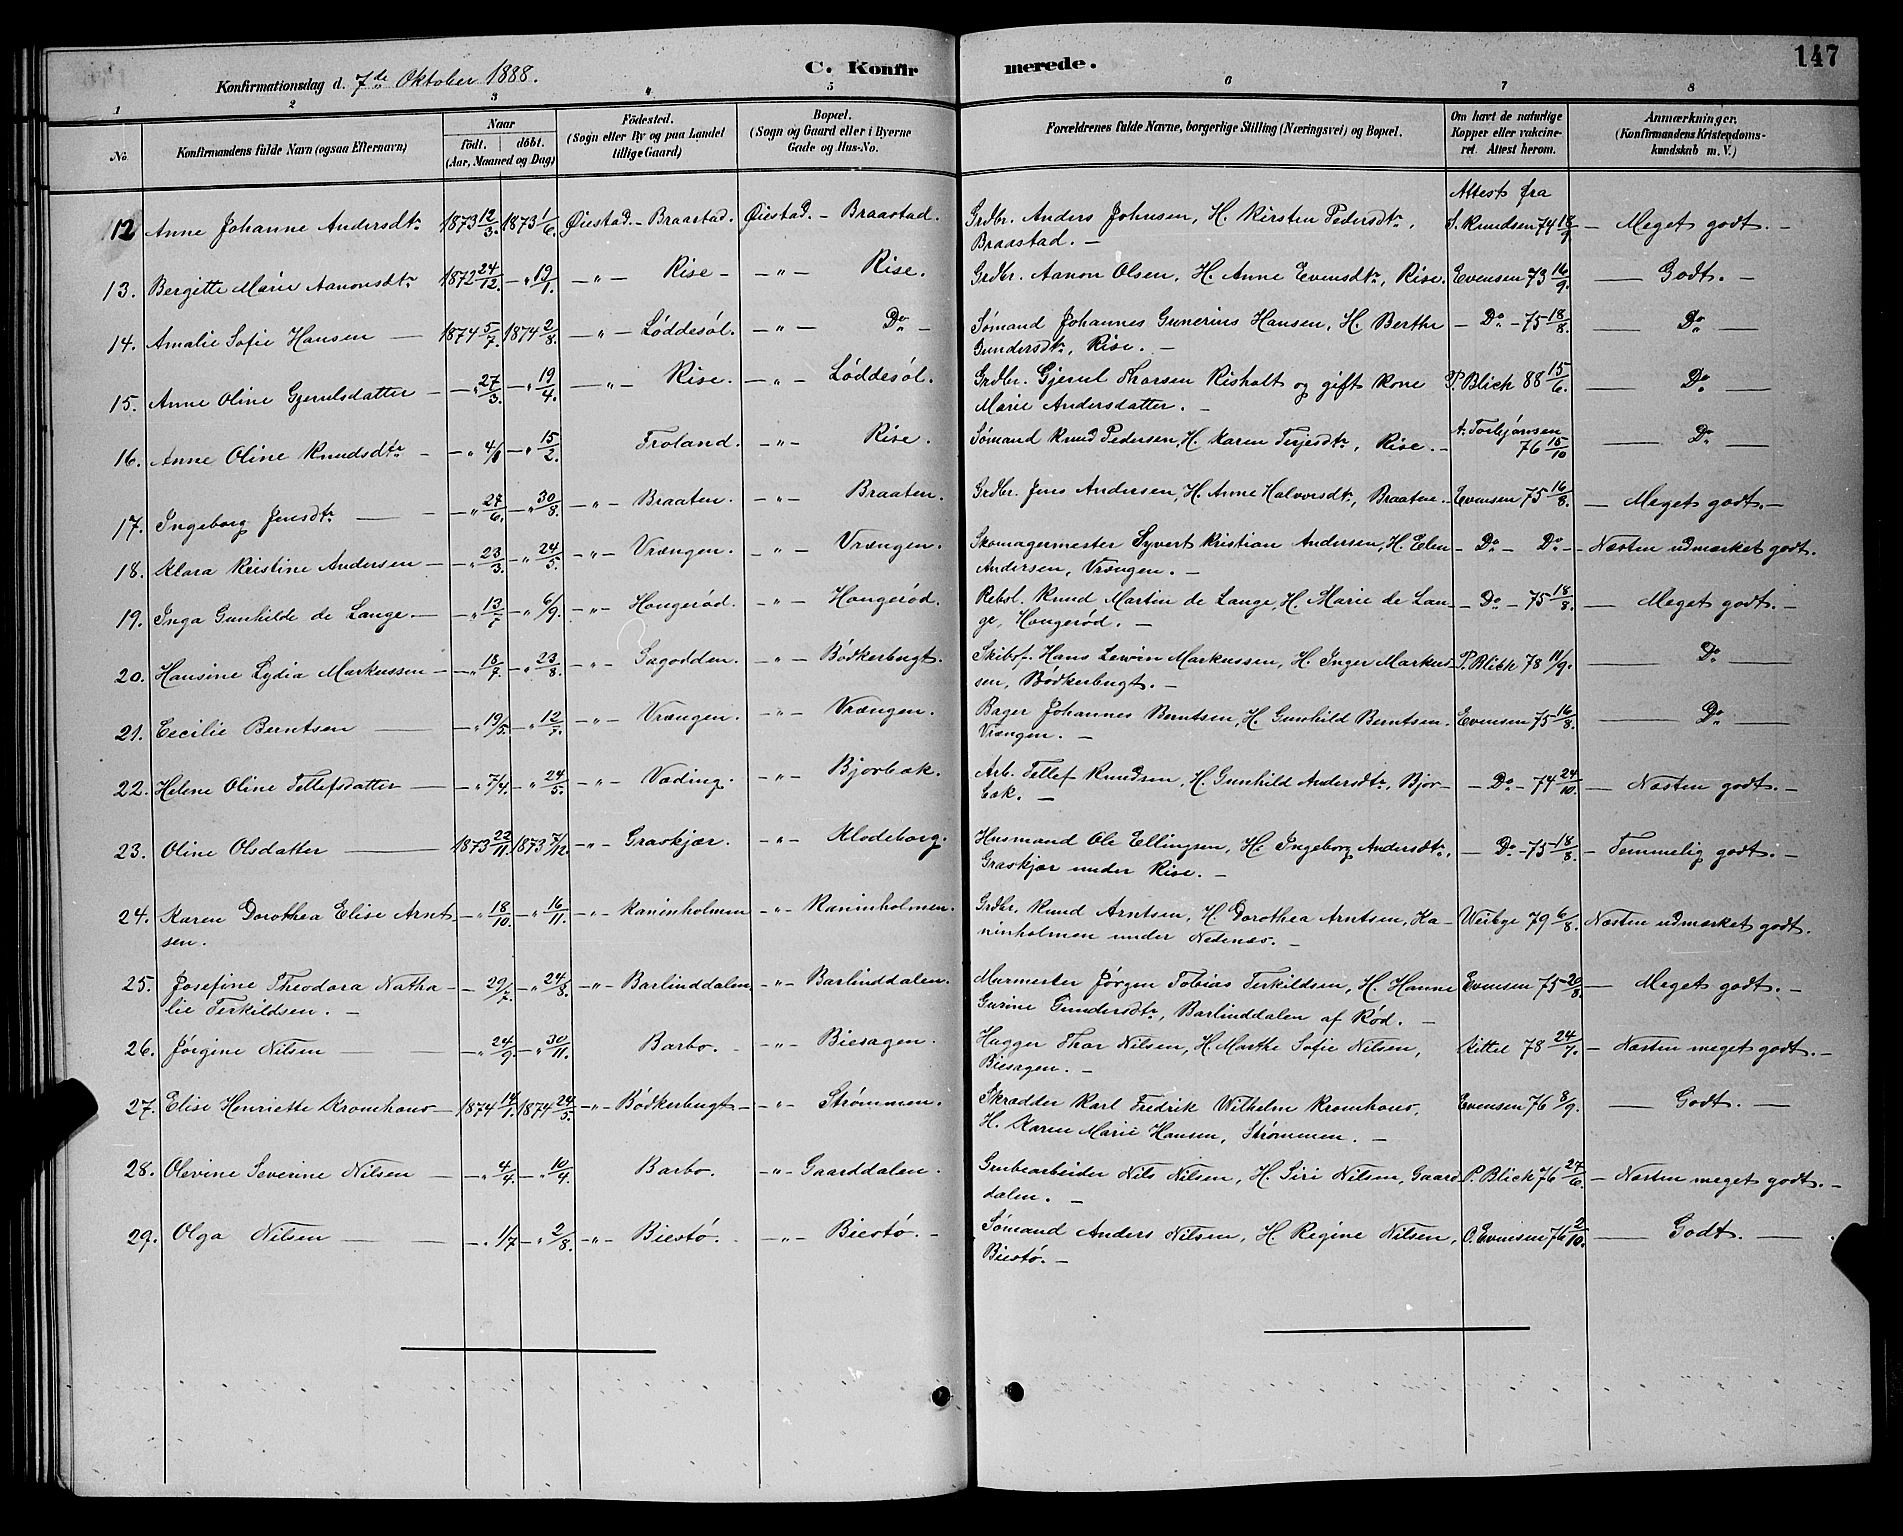 147
Konfirmationsdag d. 7de Oktober 1888.
C. Konfirmerede.
1 2 3 4 5 6 7 8
No. Konfirmandens fulde Navn (ogsaa Efternavn) Naar födt. döbt. (Aar, Maaned og Dag) Födested. (Sogn eller By og paa Landet tillige Gaard) Bopæl. (Sogn og Gaard eller i Byerne Gade og Hus-No. Forældrenes fulde Navne, borgerlige Stilling (Næringsvei) og Bopæl. Om havt de naturlige Kopper eller vakcineret. Attest herom. Anmærkninger. (Konfirmandens Kristendomskundskab m. V.)
Attest fra
12 Anne Johanne Andersdtr 1873 12/3. 1873 1/6. Øiestad. - Braastad. Øiestad. - Braastad. Grdbr. Anders Johnsen, H. Kirsten Pedersdtr, S. Knudsen 74 18/9 - Meget godt. -
Braastad. -
13. Bergitte Marie Aanonsdtr 1872 24/12. - " 19/1. - " - Rise - - " - Rise. Grdbr. Aanon Olsen, H. Anne Evensdtr, Rise. Evensen 73 16/9. - Godt. -
14. Amalie Sofie Hansen - 1874 5/7. 1874 2/8. - " - Løddesøl. - " - Do - Sømand Johannes Gunerius Hansen, H. Berthe - Do - 75 18/8. - Do -
Gundersdtr, Rise. -
15. Anne Oline Gjerulsdatter - - " 27/3. - " 19/4. - " - Rise. - " - Løddesøl. Grdbr. Gjerul Tharsen Risholt og gift Kone P. Blich 88 15/6. - Do -
Marie Andersdatter. -
16. Anne Oline Knudsdtr - - " 4/1 - " 15/2. Froland. - " - Rise. Sømand Knud Pedersen, H. Karen Terjesdtr, Rise. - A. Torbjønsen 76 15/10 - Do -
17. Ingeborg Jensdtr - - " 27/6. - " 30/8. - " - Braaten. - " - Braaten. Grdbr. Jens Andersen, H. Anne Halvorsdtr, Braaten. - Evensen 75 16/8. - Meget godt. -
18. Klara Kristine Andersen - - " 23/3. - " 24/5. - " - Vrængen. - " - Vrængen. Skomagermester Syvert Kristian Andersen, H. Elen - Do - Do - - Næsten udmærket godt.
Andersen, Vrængen. -
19. Inga Gunhilde de Lange. - - " 13/7 - " 6/9. - " - Hougerød. - " - Hougerød. Rebsl. Knud Martin de Lange, H. Marie de Lan- - Do - 75 18/8. - Meget godt. -
ge, Hougerød. -
20. Hansine Lydia Markussen - - " 18/7. - " 23/8. - " - Sagodden. - " - Bødkerbugt. Skibsf. Hans Lewin Markussen, H. Inger Markus- P. Blich 78 11/9. - Do -
sen, Bødkerbugt. -
21. Cecilie Berntsen - - " 19/5. - " 12/7. - " - Vrængen. - " - Vrængen. Bager Johannes Berntsen, H. Gunhild Berntsen. Evensen 75 16/8. - Do -
Vrængen. -
22. Helene Oline Tellefsdatter - - " 7/4. - " 24/5. - " - Vading. - " - Bjorbæk. Arb. Tellef Knudsen, H. Gunhild Andersdtr, Bjor- - Do - 74 24/10. - Næsten godt. -
bæk. -
23. Oline Olsdatter - 1873 22/11. 1873 7/12. - " - Graskjær. - " - Klodeborg. Husmand Ole Ellingsen, H. Ingeborg Andersdtr, - Do - 75 18/8. - Temmelig godt. -
Graskjær under Rise. -
24. Karen Dorothea Elise Arnt- - " 18/10. - " 16/11. - " - Kaninholmen - " - Kaninholmen. Grdbr. Knud Arntsen, H. Dorothea Arntsen, Ka- Weibye 79 6/8. Næsten udmærket godt.
sen. ninholmen under Nedenæs. -
25. Josefine Theodora Natha- - " 29/7. - " 24/8. - " - Barlinddalen. - " - Barlinddalen. Murmester Jørgen Tobias Terkildsen, H. Hanne Evensen 75 20/8. - Meget godt. -
lie Terkildsen. - Gurine Gundersdtr, Barlinddalen af Rød. -
26. Jørgine Nilsen - - " 24/9. - " 30/11. Barbo. - " - Biesagen. Hugger Thor Nilsen, H. Marthe Sofie Nilsen, Kittel 78 24/7. - Næsten meget godt. -
Biesagen. -
27. Elise Henriette Kromhous - 1874 14/1. 1874 24/5. - " - Bødkerbugt - - " - Strømmen. Skrædder Karl Fredrik Wilhelm Kromhous, Evensen 76 8/9. - Godt. -
H. Karen Marie Hansen, Strømmen. -
28. Olevine Severine Nilsen - - " 4/4. - " 10/4. Barbo. - " - Gaarddalen. Grubearbeider Nils Nilsen, H. Siri Nilsen, Gaard- P. Blich 76 27/6. - Næsten meget godt. -
dalen. -
29. Olga Nilsen - - " 1/7 - " 2/8. - " - Biestø. - " - Biestø. - Sømand Anders Nilsen, H. Regine Nilsen, O. Evensen 76 2/10. - Godt. -
Biestø. -